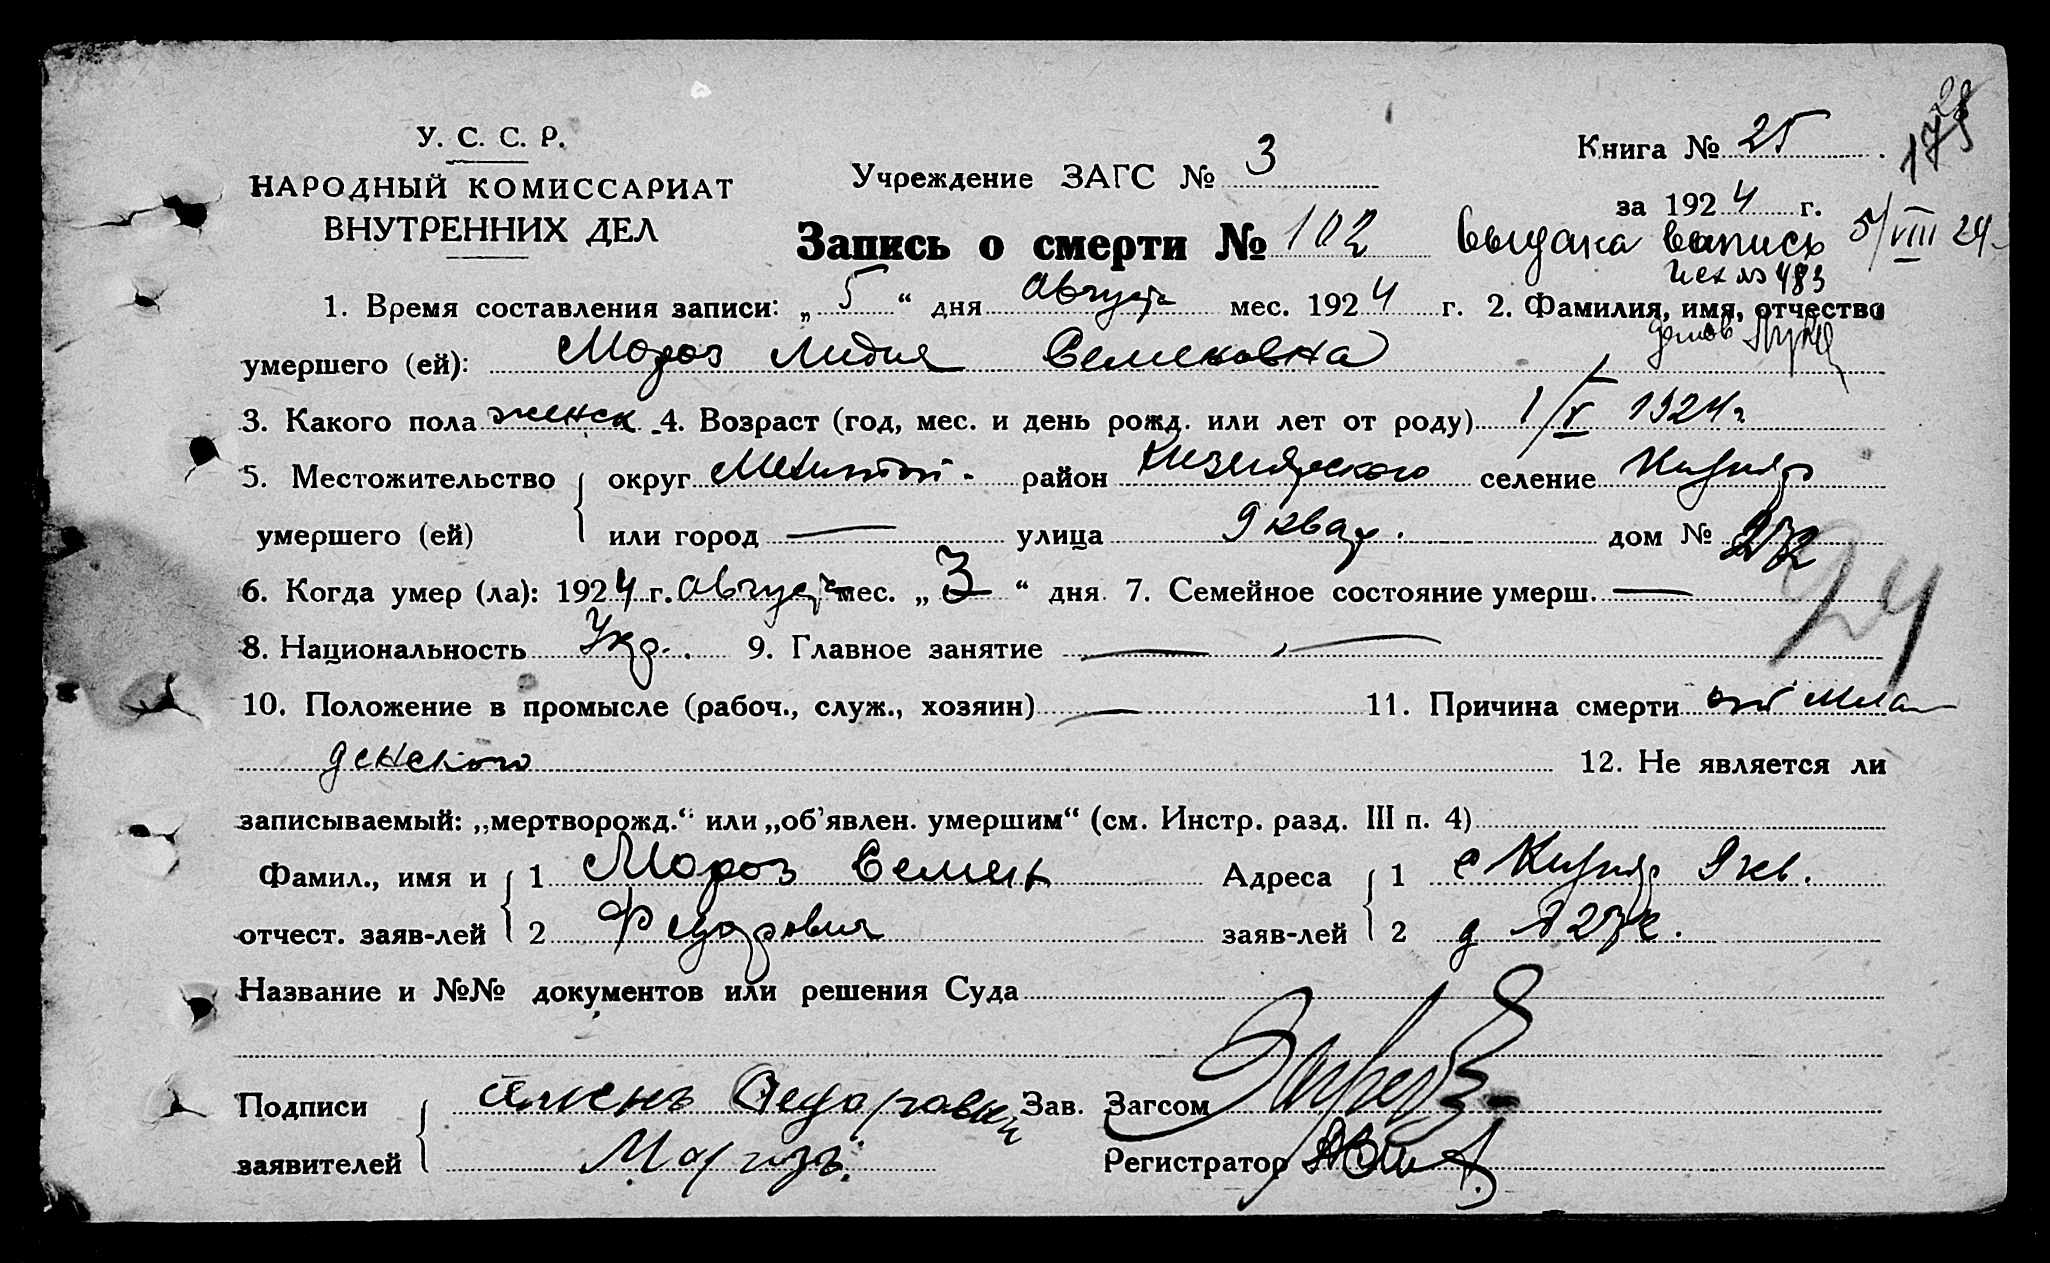 У. С. С. Р.
НАРОДНЫЙ КОМИССАРИАТ
ВНУТРЕННИХ ДЕЛ
Учреждение ЗАГС № 3
Книга № 25
за 1924 г.
Запись о смерти № 102
выдана выпись 5/VIII 24
Исх № 483
1. Время составления записи: „5“ дня Августа мес. 1924 г. 2. Фамилия, имя, отчество
умершего (ей): Мороз Лидия Семеновна
3. Какого пола женск 4. Возраст (год, мес. и день рожд. или лет от роду) 1/V 1924 г
5. Местожительство умершего (ей) округ Мелитоп. район Кизиярского селение Кизияр
или город — улица 9 квар. дом №
6. Когда умер (ла): 1924 г. августа мес. „3“ дня 7. Семейное состояние умерш. —
8. Национальность Укр. 9. Главное занятие —
10. Положение в промысле (рабоч., служ., хозяин) — 11. Причина смерти от мла
денского
12. Не является ли
записываемый: „мертворожд.“ или „об’явлен. умершим“ (см. Инстр. разд. III п. 4)
Фамил., имя и отчест. заяв-лей 1 Мороз Семен
2 Федорович
Адреса заяв-лей 1 с Кизияр 9 кв.
2 д №
Название и №№ документов или решения Суда
Подписи заявителей
Зав. Загсом
Регистратор
24